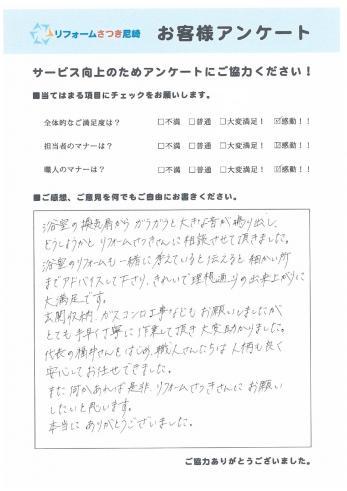 リフォームさつき尼崎 お客様アンケート
サービス向上のためアンケートにご協力ください！
■当てはまる項目にチェックをお願いします。
全体的なご満足度は？ □不満 □普通 □大変満足！ ☑感動！！
担当者のマナーは？ □不満 □普通 □大変満足！ ☑感動！！
職人のマナーは？ □不満 □普通 □大変満足！ ☑感動！！
■ご感想、ご意見を何でもご自由にお書きください。
浴室の換気扇から ガラガラと大きな音が鳴り出し、
どうしようかと リフォームさつきさんに相談させて頂きました。
浴室のリフォームも一緒に考えていると伝えると 細かい所
までアドバイスして下さり、きれいで理想通りの出来上がりに
大満足です。
玄関収納、ガスコンロ工事なども お願いしましたが
とても手早く丁寧に作業して頂き 大変助かりました。
代表の横井さんをはじめ、職人さんたちは 人柄も良く
安心してお任せできました。
また何かあれば 是非、リフォームさつきさんに お願い
したいと思います。
本当に ありがとうございました。
ご協力ありがとうございました。